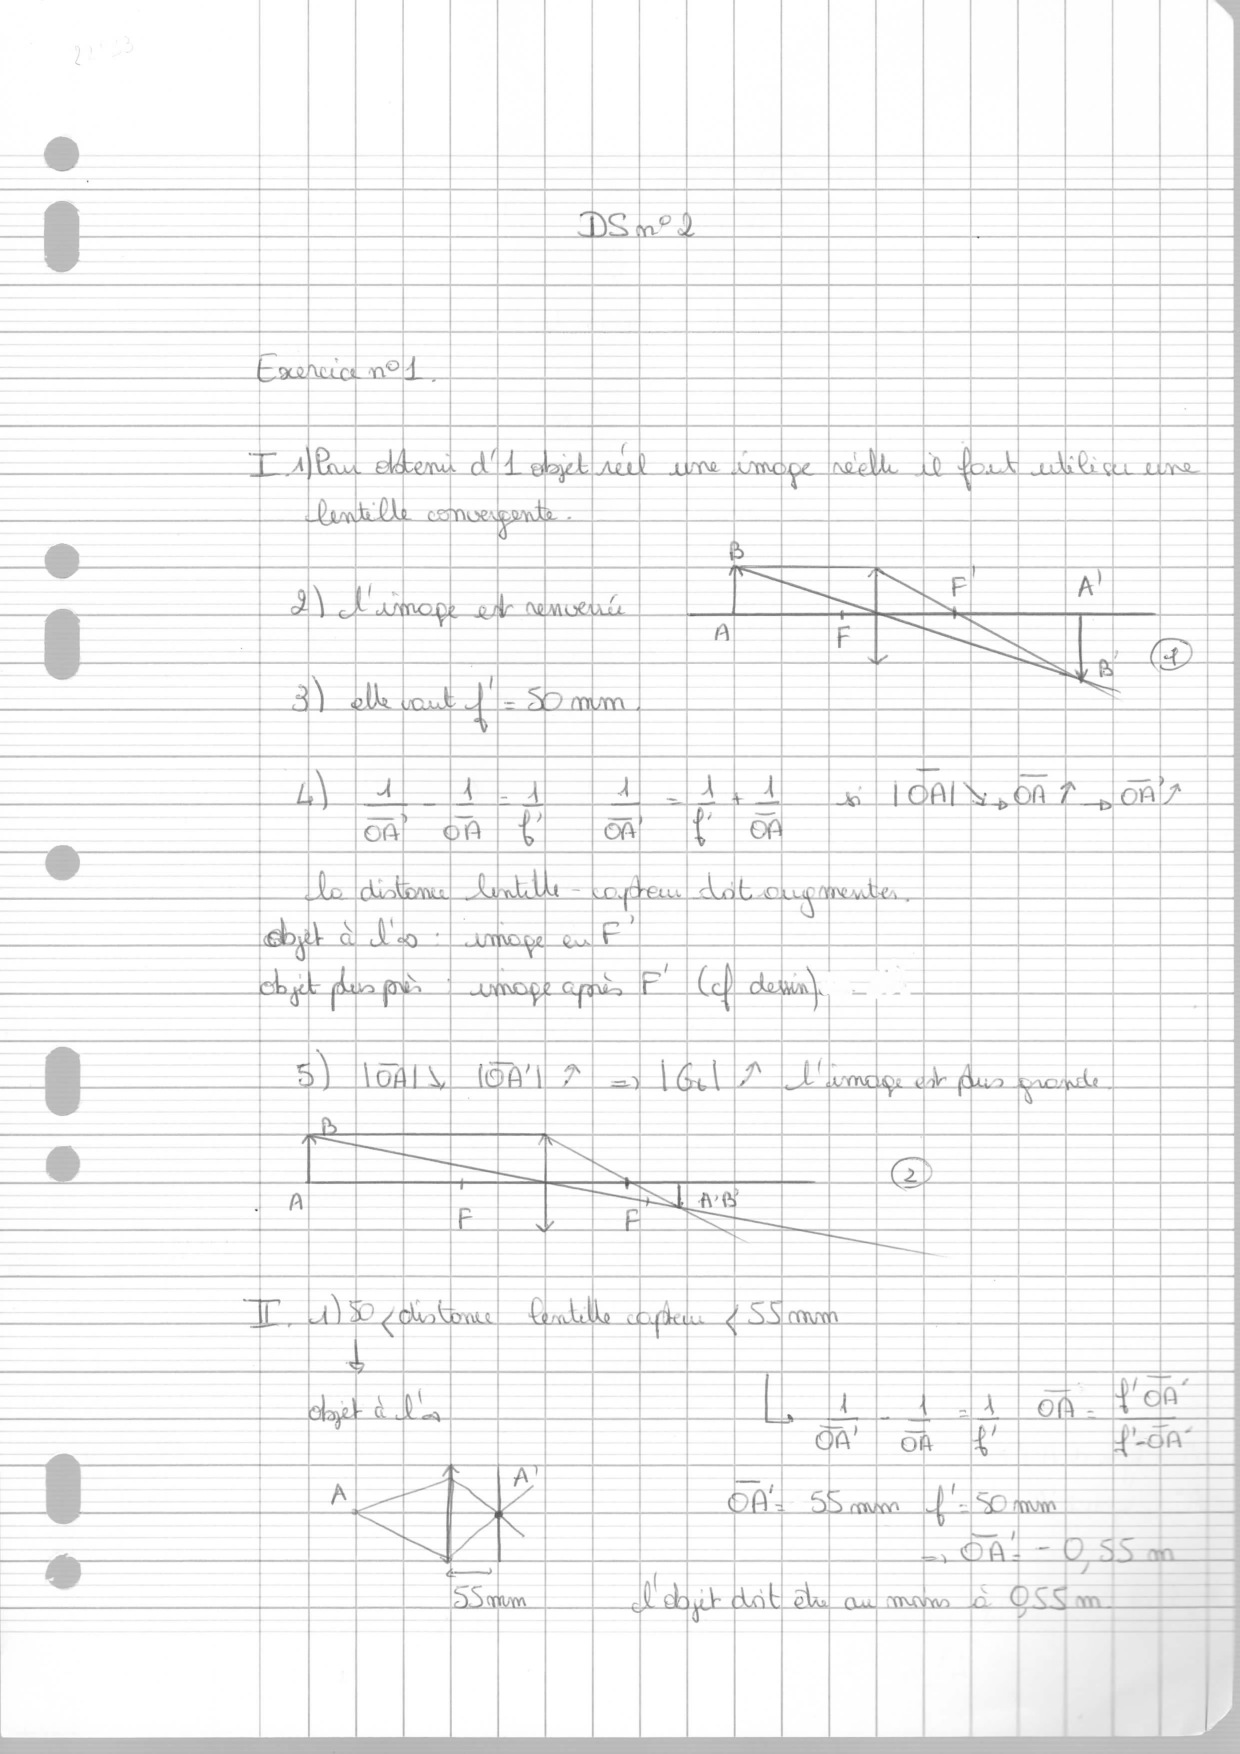 DS n° 2
Exercice n° 1.
I 1) Pour obtenir d'1 objet réel une image réelle il faut utiliser une
lentille convergente.
2) l'image est renversée
B
A
F
F'
A'
B'
1
3) elle vaut f' = 50 mm.
4) 1/OA' - 1/OA = 1/f' 1/OA' = 1/f' + 1/OA si |OA| ↘ → OA ↑ → OA' ↗
la distance lentille-capteur doit augmenter.
objet à l'∞ : image en F'
objet plus près : image après F' (cf dessin).
5) |OA| ↘ |OA'| ↗ => |Gt| ↗ l'image est plus grande.
B
A
F
F'
A'B'
2
II. 1) 50 < distance lentille capteur < 55 mm
↓
objet à l'∞
↳ 1/OA' - 1/OA = 1/f' OA = f' OA' / f'-OA'
A
A'
55 mm
OA' = 55 mm f' = 50 mm
=> OA' = - 0,55 m
l'objet doit être au moins à 0,55 m.